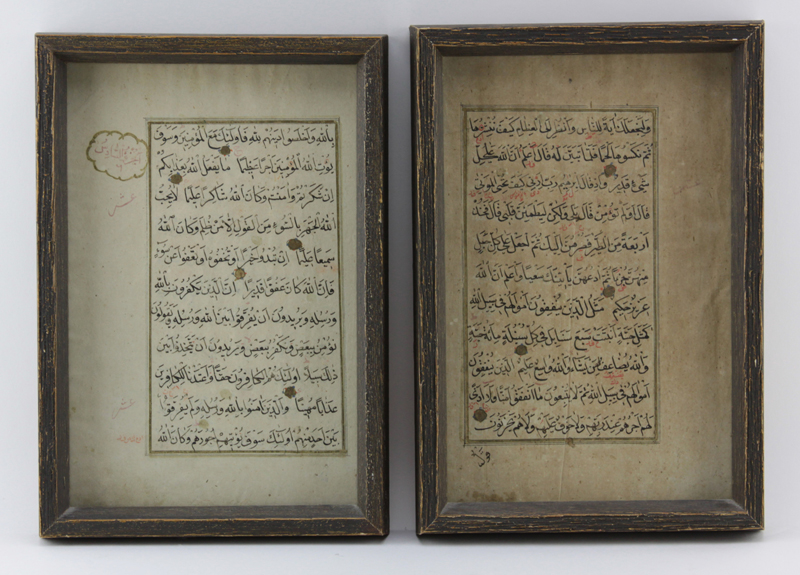 بالله واخلصوا دينهم لله فاولئك مع المؤمنين وسوف
يؤت الله المؤمنين اجرا عظيما ما يفعل الله بعذابكم
ان شكرتم وامنتم وكان الله شاكرا عليما لا يحب
الله الجهر بالسوء من القول الا من ظلم وكان الله
سميعا عليما ان تبدوا خيرا او تخفوه او تعفوا عن سوء
فان الله كان عفوا قديرا ان الذين يكفرون بالله
ورسله ويريدون ان يفرقوا بين الله ورسله ويقولون
نؤمن ببعض ونكفر ببعض ويريدون ان يتخذوا بين
ذلك سبيلا اولئك هم الكافرون حقا واعتدنا للكافرين
عذابا مهينا والذين امنوا بالله ورسله ولم يفرقوا
بين احد منهم اولئك سوف يؤتيهم اجورهم وكان الله
عشر
عشر
ولنجعلك اية للناس وانظر الى العظام كيف ننشزها
ثم نكسوها لحما فلما تبين له قال اعلم ان الله على كل
شيء قدير واذ قال ابرهيم رب ارنى كيف تحى الموتى
قال اولم تؤمن قال بلى ولكن ليطمئن قلبى قال فخذ
اربعة من الطير فصرهن اليك ثم اجعل على كل جبل
منهن جزءا ثم ادعهن يأتينك سعيا واعلم ان الله
عزيز حكيم مثل الذين ينفقون اموالهم فى سبيل الله
كمثل حبة انبتت سبع سنابل فى كل سنبلة مائة حبة
والله يضاعف لمن يشاء والله واسع عليم الذين ينفقون
اموالهم فى سبيل الله ثم لا يتبعون ما انفقوا منا ولا اذى
لهم اجرهم عند ربهم ولا خوف عليهم ولا هم يحزنون
قول